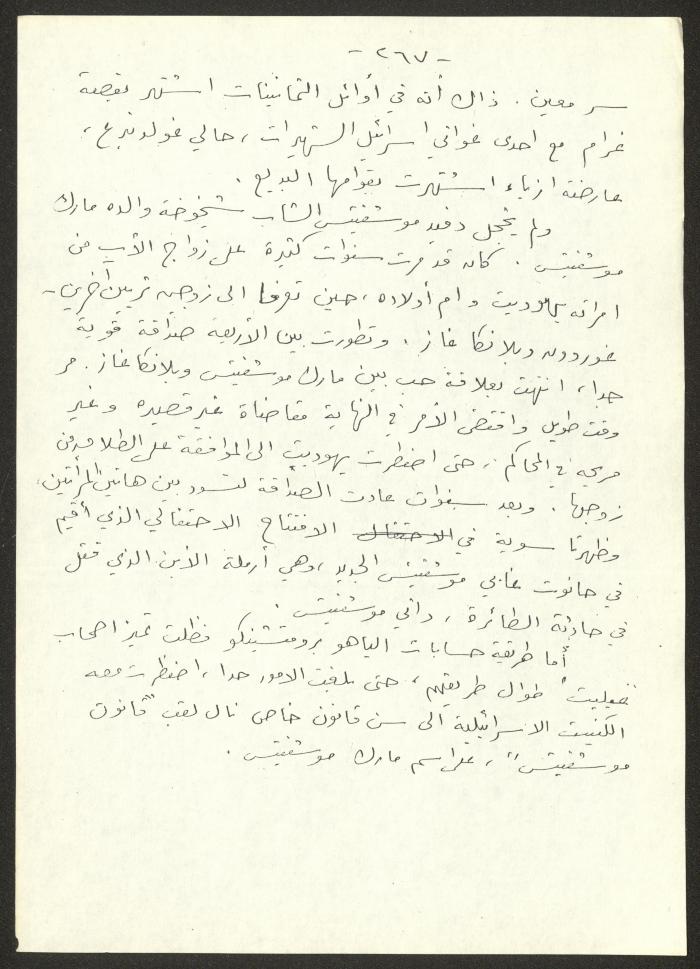 - ٢٦٧ -
سر معين. ذلك أنه في أوائل الثمانينات اشتهر بقصة
غرام مع احدى غواني اسرائيل الشهيرات، حالي غولدنبرغ،
عارضة ازياء اشتهرت بقوامها البديع.
ولم يخجل دفيد موشفيتس الشاب شيخوخة والده مارك
موشفيتس. كانه قد مرت سنوات كثيرة على زواج الأب من
امراته يهوديت وام أولاده، حين تعرفا الى زوجين ثريين آخرين -
غوردون وبلانكا غاز. وتطورت بين الأربعة صداقة قوية
جدا، انتهت بعلاقة حب بين مارك موشفيتس وبلانكا غاز. مر
وقت طويل واقتضى الأمر في النهاية مقاضاة غير قصيره وغير
مريحه في المحاكم، حتى اضطرت يهوديت الى الموافقة على الطلاق من
زوجها. وبعد سنوات عادت الصداقة لتسود بين هاتين المرأتين،
وظهرتا سوية في الاحتفال الافتتاح الاحتفالي الذي أقيم
في حانوت غابي موشفيتس الجديد، وهي أرملة الأبن الذي قتل
في حادثة الطائرة، داني موشفيتس.
أما طريقة حسابات الياهو برومتشينكو فظلت تميز اصحاب
"عيليت" طوال طريقهم، حتى بلغت الامور حدا، اضطرت معه
الكنيست الاسرائيلية الى سن قانون خاص نال لقب "قانون
موشفيتس"، على اسم مارك موشفيتس.